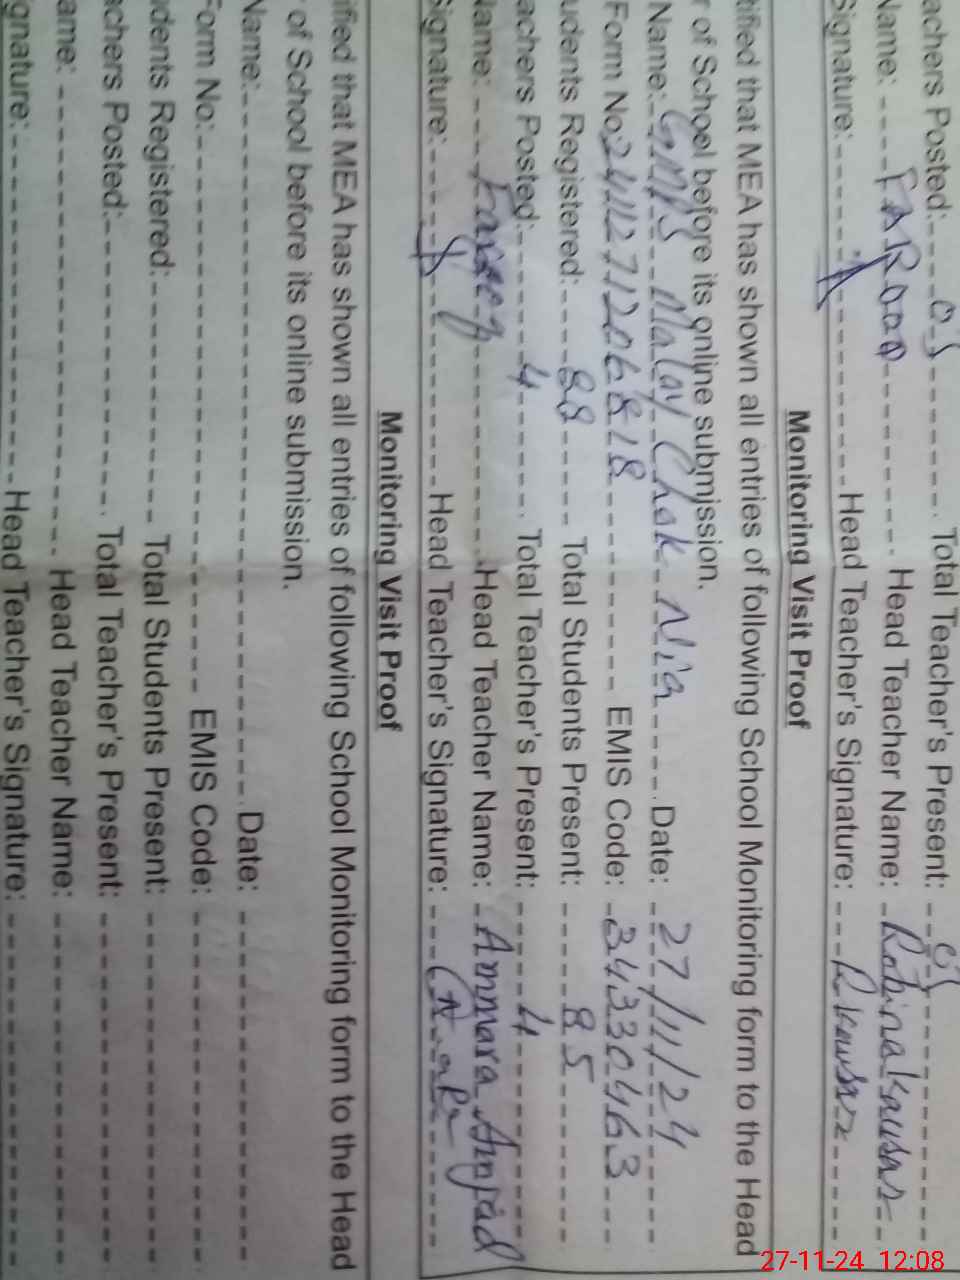 achers Posted:----05--------. Total Teacher's Present: ---05----------
Name: ----FAROOQ---------. Head Teacher Name: -Robina kausar--
Signature:-----------------Head Teacher's Signature: ---R kausar-----
Monitoring Visit Proof
tified that MEA has shown all entries of following School Monitoring form to the Head
r of School before its online submission.
Name:-GMPS Malay Chak Nia----. Date: --27/11/24------
Form No:-2411271206818---------- EMIS Code: -34330463---
udents Registered:----88------ Total Students Present: -----85--------
achers Posted:------4------. Total Teacher's Present:-----4----------
Name: ----Farooq----------.Head Teacher Name: -Ammara Amjad
Signature:-----------------Head Teacher's Signature: ---
Monitoring Visit Proof
ified that MEA has shown all entries of following School Monitoring form to the Head
r of School before its online submission.
Name:---------------------------. Date: ----------------
Form No:------------------------ EMIS Code: ----------------
udents Registered:------------ Total Students Present: ----------------
achers Posted:--------------. Total Teacher's Present: ----------------
ame: ---------------------. Head Teacher Name: ----------------
ignature:-----------------Head Teacher's Signature: ----------------
27-11-24 12:08